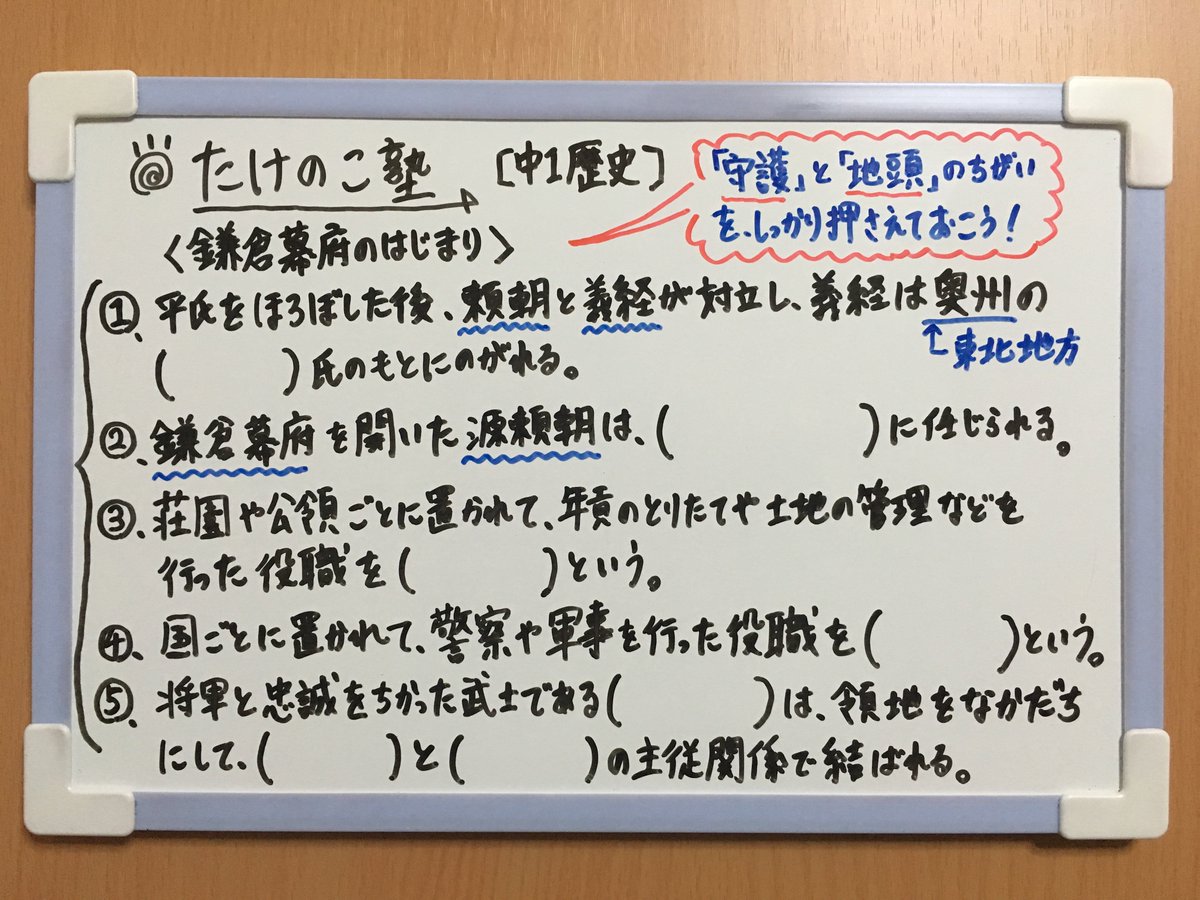 たけのこ塾 [中1歴史]
「守護」と「地頭」のちがい
を、しっかり押さえておこう!
〈鎌倉幕府のはじまり〉
①、平氏をほろぼした後、頼朝と義経が対立し、義経は奥州の
↑東北地方
(　　　)氏のもとにのがれる。
②、鎌倉幕府を開いた源頼朝は、(　　　　　)に任じられる。
③、荘園や公領ごとに置かれて、年貢のとりたてや土地の管理などを
行った役職を(　　　)という。
④、国ごとに置かれて、警察や軍事を行った役職を(　　　)という。
⑤、将軍と忠誠をちかった武士である(　　　)は、領地をなかだち
にして、(　　　)と(　　　)の主従関係で結ばれる。